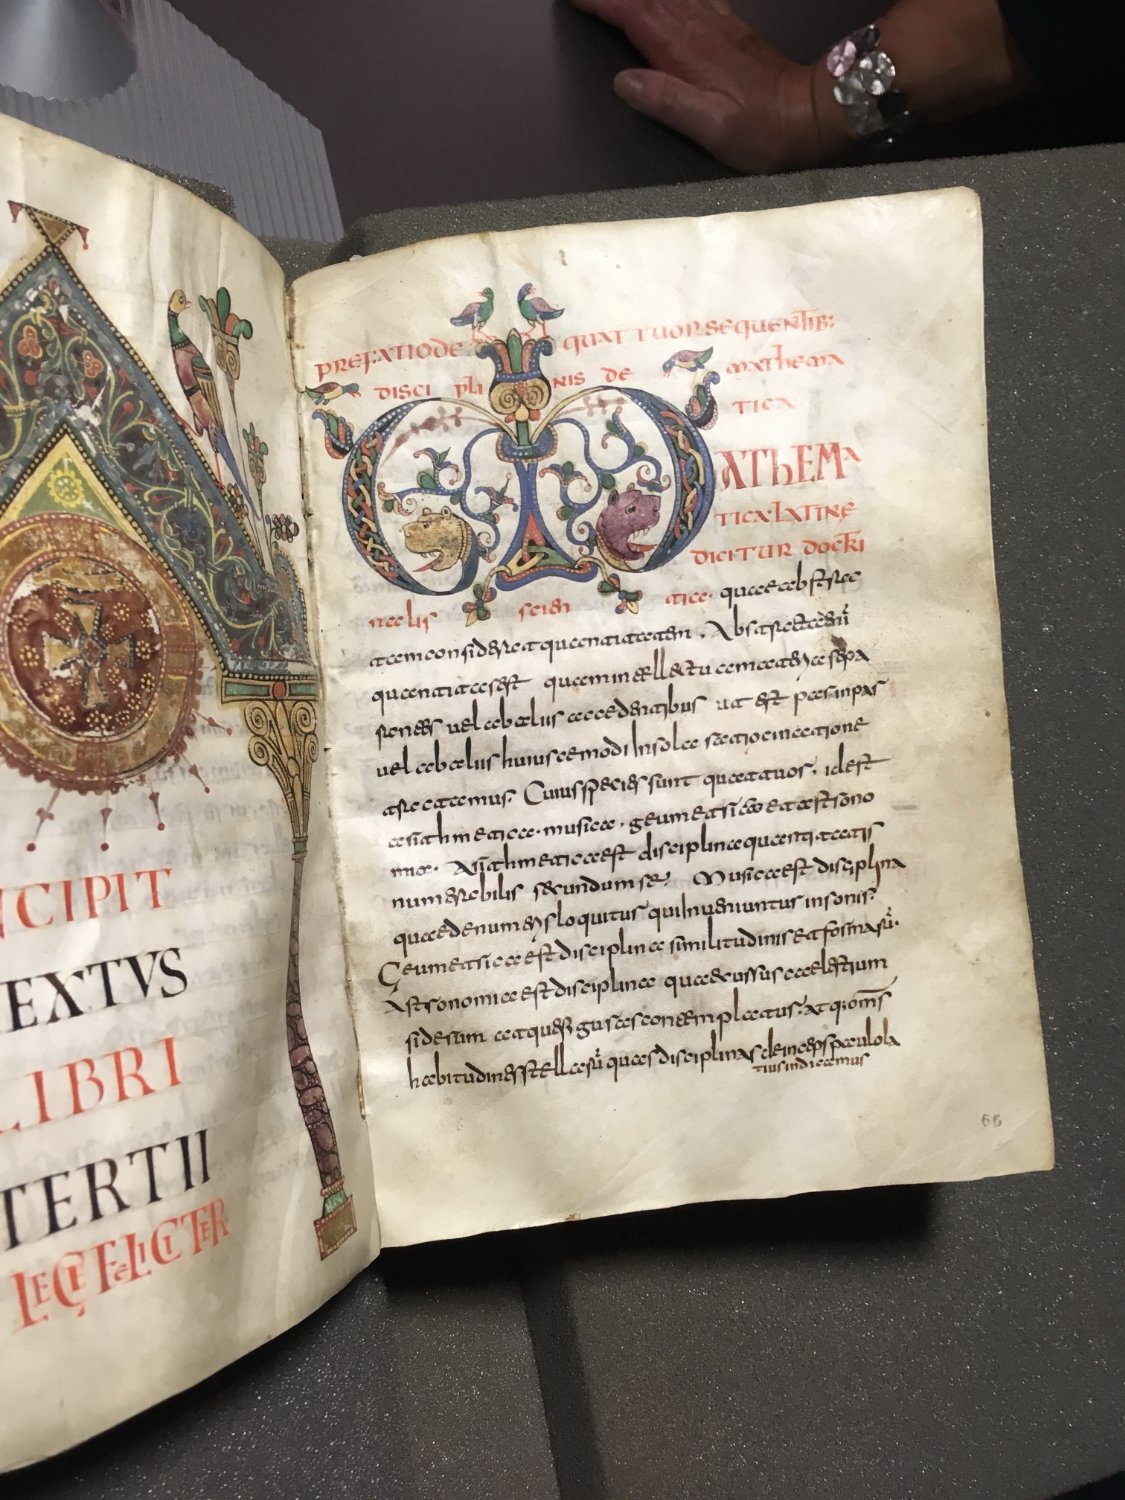 NCIPIT
EXTVS
LIBRI
TERTII
LEGE FELICITER
PREFATIO DE QUATTUOR SEQUENTIB:
DISCIPLINIS DE MATHEMA
TICA
MATHEMA
TICA LATINE
DICITUR DOCTRI
nalis scientiae. quae abstrac
tam considerat quantitatem. Abstracta enī
quantitas est quam intellectu a materia sepa
rantes vel ab aliis accidentibus ut est par inpar
vel ab aliis huiuscemodi In sola ratiocinatione
tractamus. Cuius species sunt quattuor. id est
arithmetica. musica. geumetrica et astrono
mia. Arithmetica est disciplina quantitatis
numerabilis secundum se. Musica est disciplina
quae de numeris loquitur qui Inveniuntur in sonis.
Geumetrica est disciplina similitudinis et formarū.
Astronomia est disciplina quae cursus caelestium
siderum atque figuras contemplatur. atq; omēs
habitudines stellarū quas disciplinas deinceps paulo la
tius indicamus
66